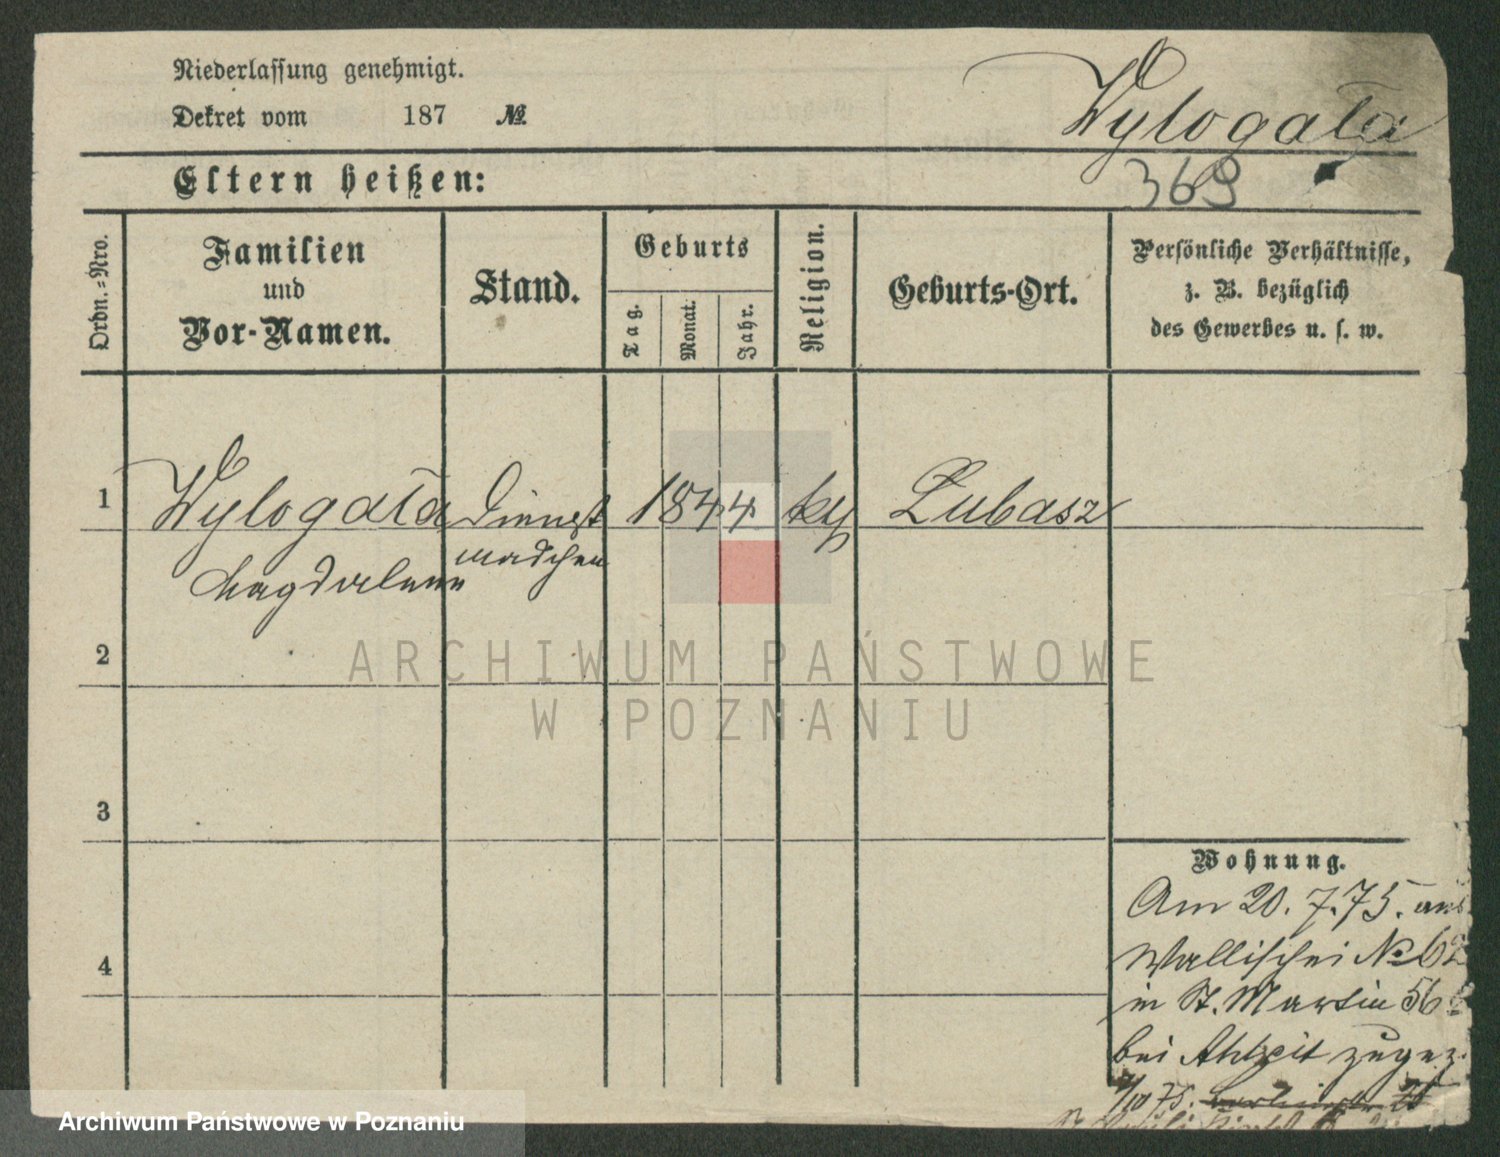 Niederlassung genehmigt.
Wylogała
Dekret vom 187 №
Eltern heißen:
369
Ordn.-Nro.
Familien
und
Vor-Namen.
Stand.
Geburts
Tag.
Monat.
Jahr.
Religion.
Geburts-Ort.
Persönliche Verhältnisse,
z. B. bezüglich
des Gewerbes u. s. w.
1 Wylogała Dienst 1844 kth Lubasz
Magdalena mädchen
2
ARCHIWUM PAŃSTWOWE
W POZNANIU
3
Wohnung.
Am 20. 7. 75. aus
Wallischei № 62
4
in St. Martin 56
bei zugez.
/10 75. 25
Archiwum Państwowe w Poznaniu